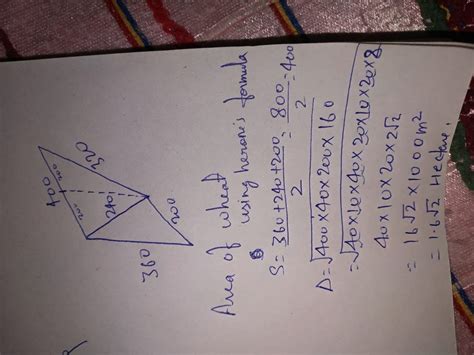 400
200
200
320
240
200
360
Area of wheat
using heron's formula
S = 360+240+200/2 = 800/2 = 400
Δ = √400×40×200×160
= √40×10×40×20×10×20×8
40×10×20×2√2
= 16√2 × 1000m²
= 1.6√2 Hectare.